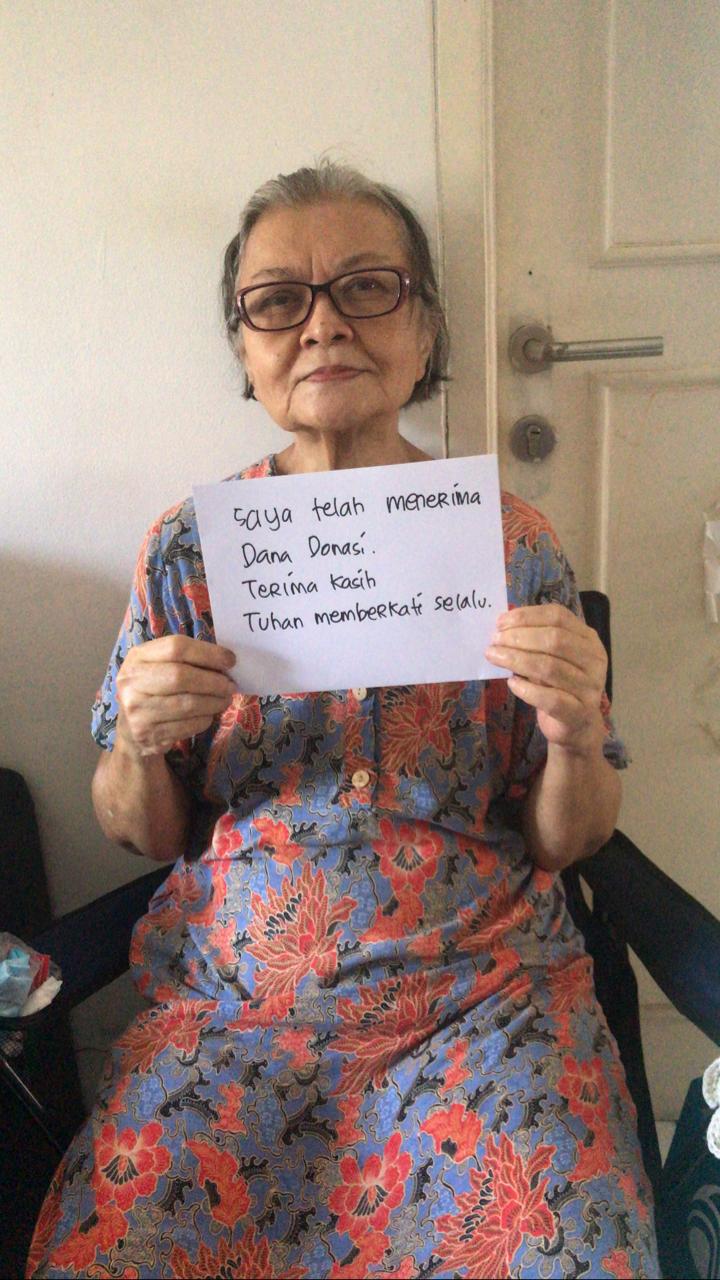 Saya telah menerima
Dana Donasi.
Terima kasih
Tuhan memberkati selalu.